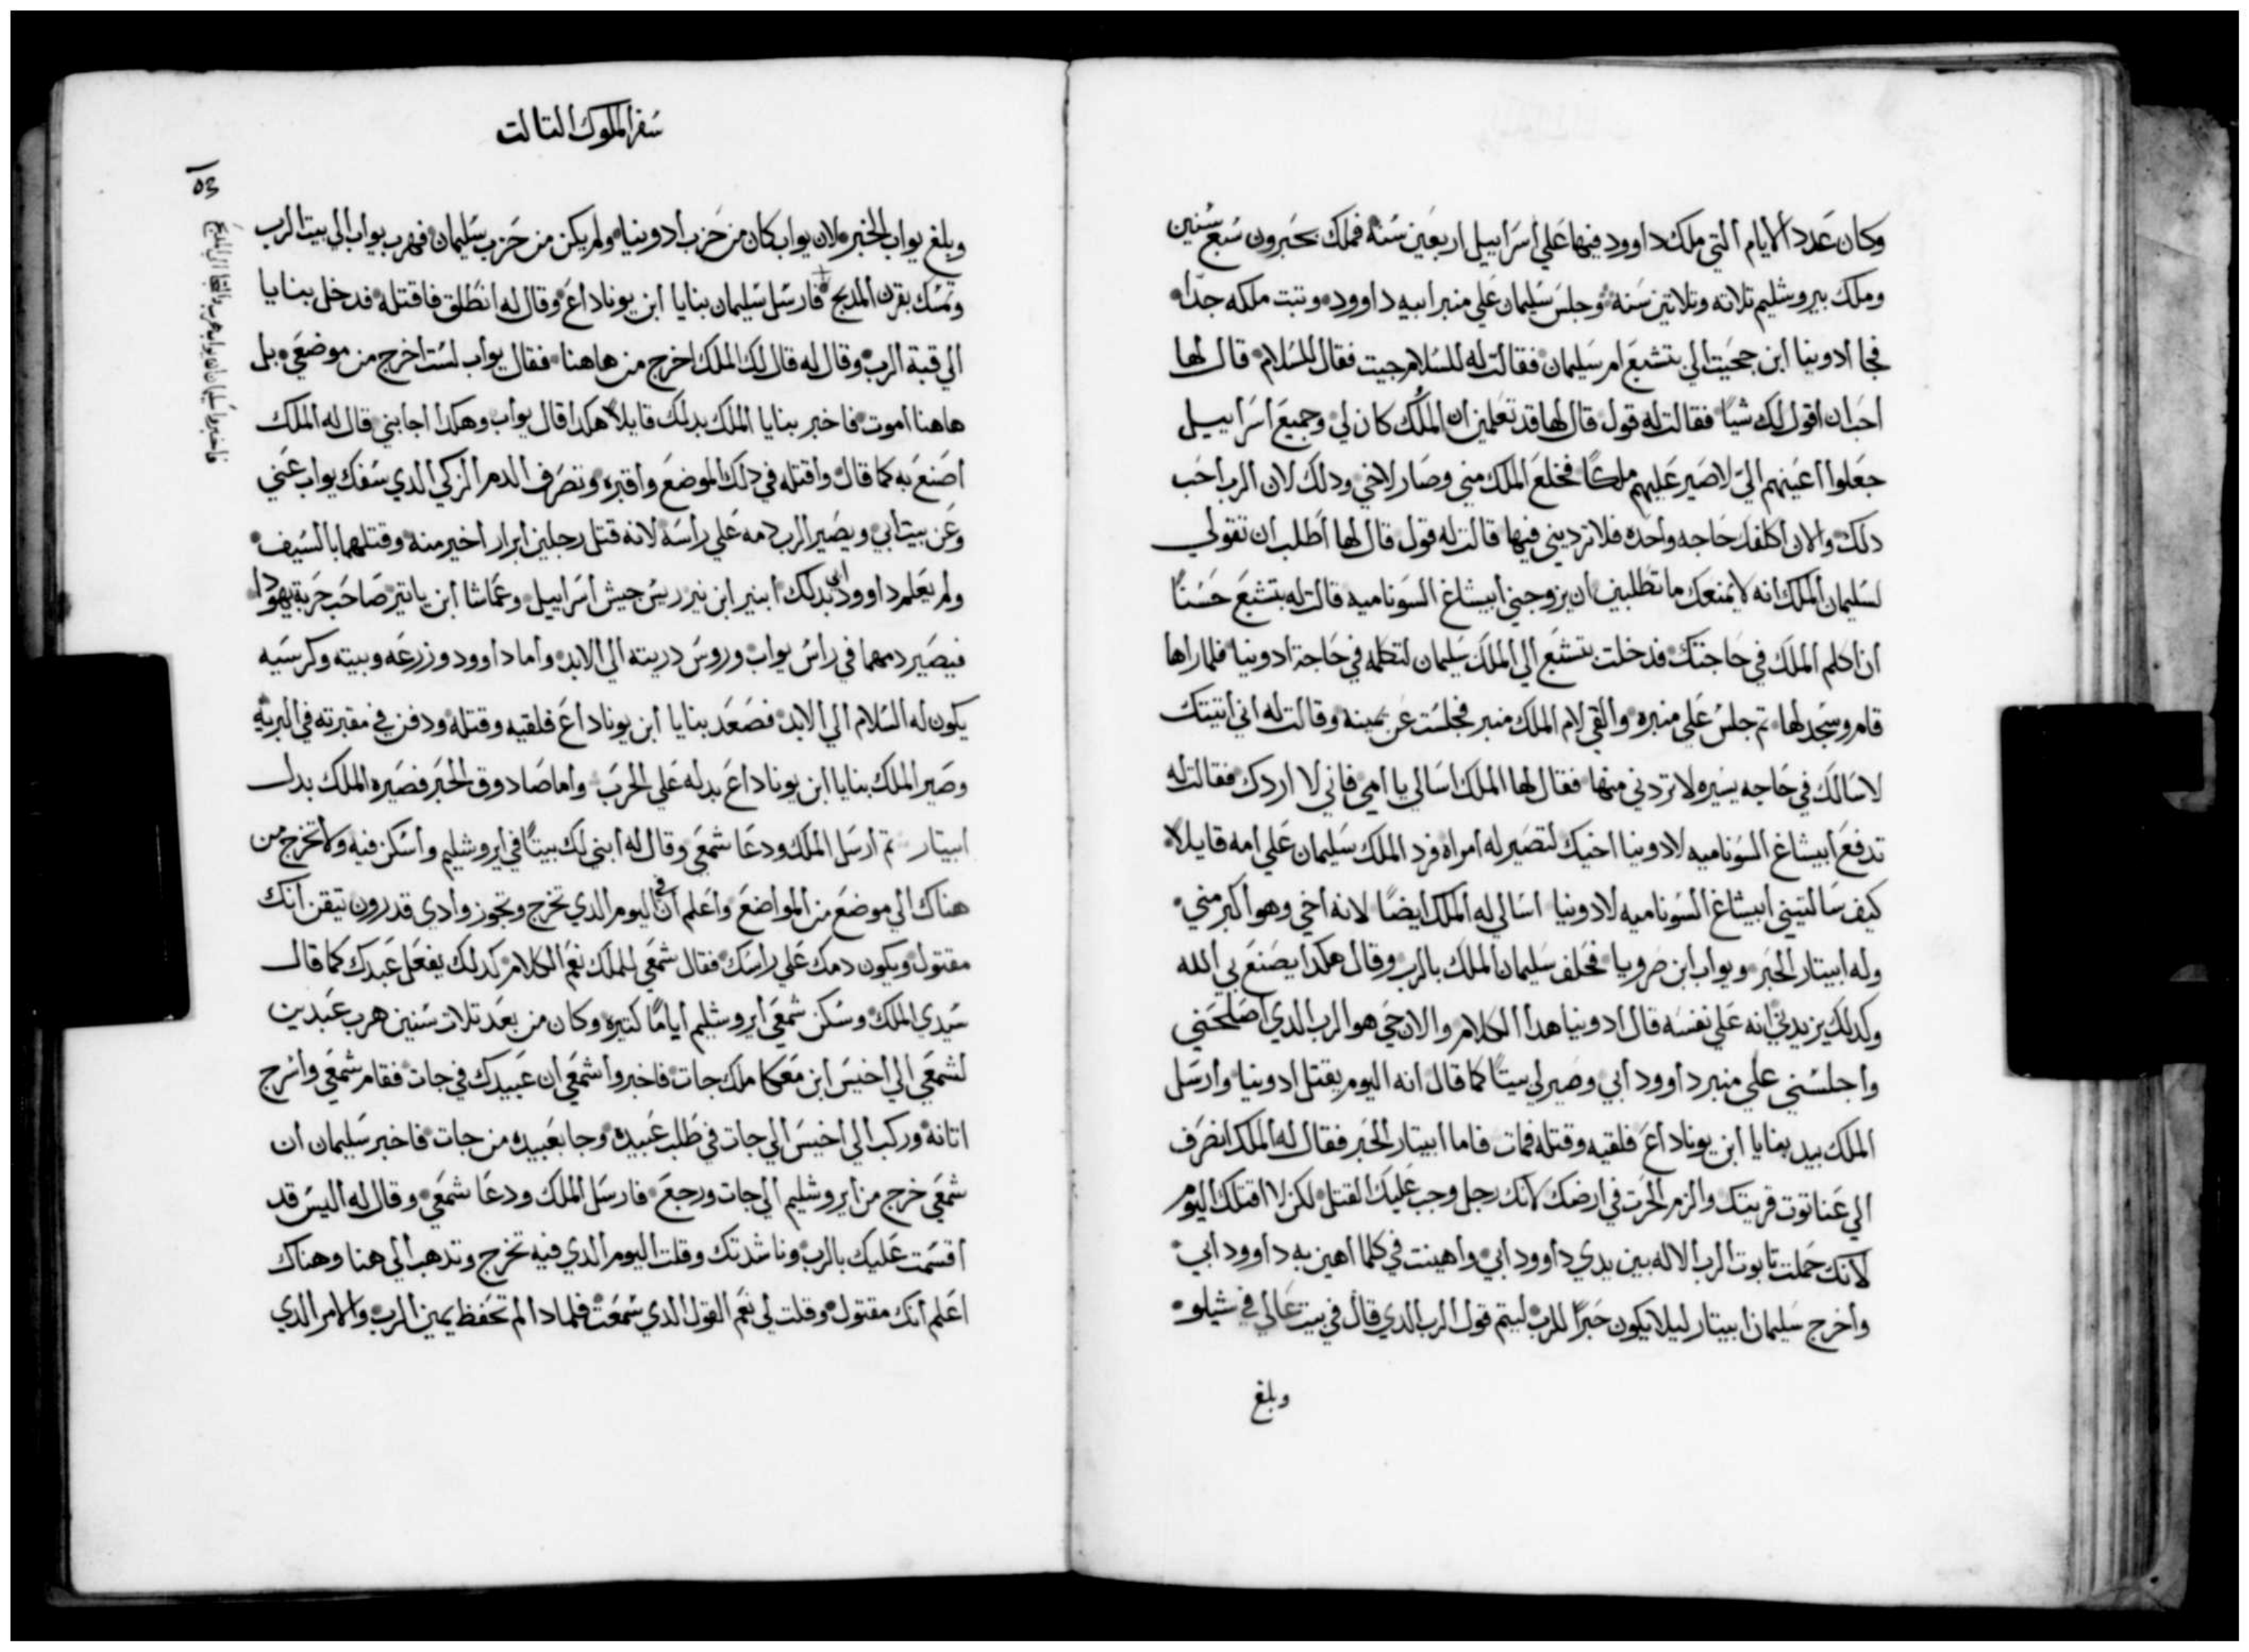 وكان عدد الايام التي ملك داوود فيها علي اسراييل اربعين سنه فملك بحبرون سبع سنين
وملك بيروشليم تلاته وتلاتين سنه وجلس سليمان علي منبر ابيه داوود وتبت ملكه جدا
فجا ادونيا ابن حجيت الي بتشبع ام سليمان فقالت له للسلام جيت فقال للسلام قال لها
احب ان اقول لك شيا فقالت له قول قال لها قد تعلمين ان الملك كان لي وجميع اسراييل
جعلوا اعينهم الي لاصير عليهم ملكا فخلع الملك مني وصار لاخي ودلك لان الرب احب
دلك والان اكلفك حاجه واحده فلا ترديني فيها قالت له قول قال لها اطلب ان تقولي
لسليمان الملك انه لا يمنعك ما تطلبين ان يزوجني ابيشاغ السوناميه قالت له بتشبع حسنا
انا اكلم الملك في حاجتك فدخلت بتشبع الي الملك سليمان لتكلمه في حاجة ادونيا فلما راها
قام وسجد لها تم جلس علي منبره والقي لام الملك منبر فجلست عن يمينه وقالت له اني اتيتك
لاسالك في حاجه يسيره لا تردني منها فقال لها الملك اسالي يا امي فاني لا اردك فقالت له
تدفع ابيشاغ السوناميه لادونيا اخيك لتصير له امراه فرد الملك سليمان علي امه قايلا
كيف سالتيني ابيشاغ السوناميه لادونيا اسالي له الملك ايضا لانه اخي وهو اكبر مني
وله ابيتار الحبر ويواب ابن صرويا فحلف سليمان الملك بالرب وقال هكدا يصنع بي الله
وكدلك يزيدني انه علي نفسه قال ادونيا هدا الكلام والان حي هو الرب الدي اصلحني
واجلسني علي منبر داوود ابي وصير لي بيتا كما قال انه اليوم يقتل ادونيا وارسل
الملك بيد بنايا ابن يوناداع فلقيه وقتله فمات فاما ابيتار الحبر فقال له الملك انصرف
الي عناتوت قريتك والزم الحرت في ارضك لانك رجل وجب عليك القتل لكن لا اقتلك اليوم
لانك حملت تابوت الرب الاله بين يدي داوود ابي واهينت في كلما اهين به داوود ابي
واخرج سليمان ابيتار ليلا يكون حبرا للرب ليتم قول الرب الدي قال في بيت عالي في شيلو
وبلغ
سفر الملوك التالت
وبلغ يواب الخبر لان يواب كان من حزب ادونيا ولم يكن من حزب سليمان فهرب يواب الي بيت الرب
وتمسك بقرن المدبح فارسل سليمان بنايا ابن يوناداع وقال له انطلق فاقتله فدخل بنايا
الي قبة الرب وقال له قال لك الملك اخرج من هاهنا فقال يواب لست اخرج من موضعي بل
هاهنا اموت فاخبر بنايا الملك بدلك قايلا هكدا قال يواب وهكدا اجابني قال له الملك
اصنع به كما قال واقتله في دلك الموضع واقبره وتصرف الدم الزكي الدي سفك يواب عني
وعن بيت ابي ويصير الرب دمه علي راسه لانه قتل رجلين ابرار اخير منه وقتلهما بالسيف
ولم يعلم داوود ابي بدلك ابنير ابن نير ريس جيش اسراييل وعماشا ابن ياتير صاحب حربة يهودا
فيصير دمهما في راس يواب وروس دريته الي الابد واما داوود وزرعه وبيته وكرسيه
يكون له السلام الي الابد فصعد بنايا ابن يوناداع فلقيه وقتله ودفن في مقبرته في البريه
وصير الملك بنايا ابن يوناداع بدله علي الحرب واما صادوق الحبر فصيره الملك بدل
ابيتار تم ارسل الملك ودعا شمعي وقال له ابني لك بيتا في ايروشليم واسكن فيه ولا تخرج من
هناك الي موضع من المواضع واعلم ان في اليوم الدي تخرج وتجوز وادي قدرون تيقن انك
مقتول ويكون دمك علي راسك فقال شمعي للملك نعم الكلام كدلك يفعل عبدك كما قال
سيدي الملك وسكن شمعي ايروشليم اياما كتيره وكان من بعد تلات سنين هرب عبدين
لشمعي الي اخيس ابن معكا ملك جات فاخبروا شمعي ان عبيدك في جات فقام شمعي واسرج
اتانه وركب الي اخيس الي جات في طلب عبيده وجا بعبيده من جات فاخبر سليمان ان
شمعي خرج من ايروشليم الي جات ورجع فارسل الملك ودعا شمعي وقال له اليس قد
اقسمت عليك بالرب وناشدتك وقلت اليوم الدي فيه تخرج وتدهب الي هنا وهناك
اعلم انك مقتول وقلت لي نعم القول الدي سمعت فلمادا لم تحفظ يمين الرب والامر الدي
فاخبروا سليمان ان يواب هرب والتجا الي المدبح